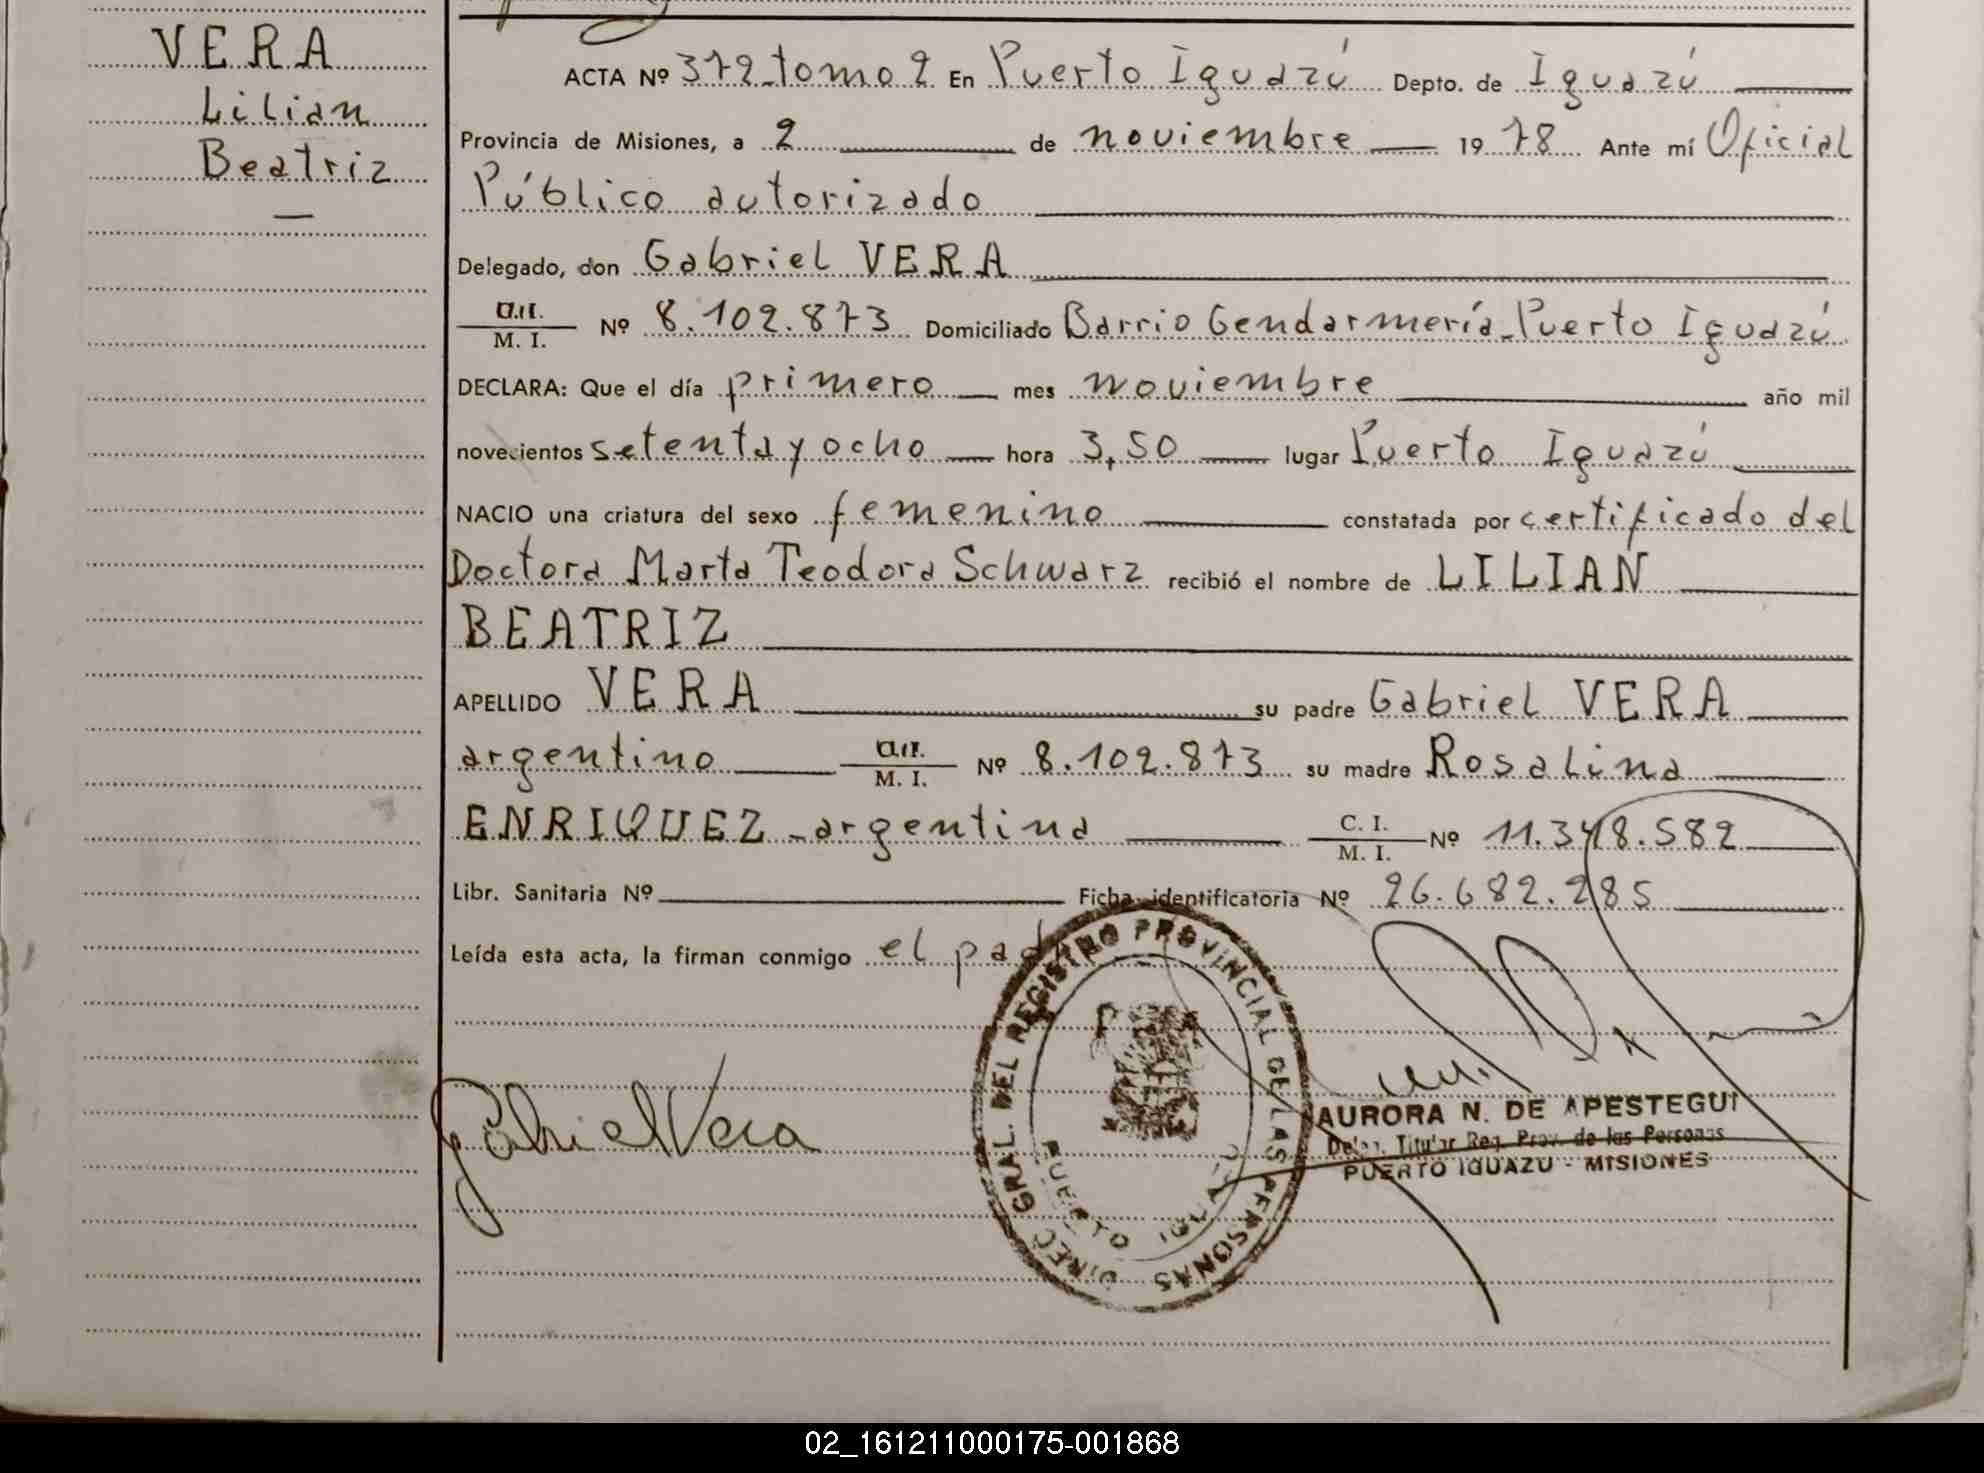 VERA
Lilian
Beatriz
—
ACTA Nº 372-tomo 2 En Puerto Iguazú Depto. de Iguazú
Provincia de Misiones, a 2 de noviembre 1978 Ante mí Oficial
Público autorizado
Delegado, don Gabriel VERA
M. I. Nº 8.102.873 Domiciliado Barrio Gendarmería-Puerto Iguazú
DECLARA: Que el día primero mes noviembre año mil
novecientos setenta y ocho hora 3,50 lugar Puerto Iguazú
NACIO una criatura del sexo femenino constatada por certificado del
Doctora Marta Teodora Schwarz recibió el nombre de LILIAN
BEATRIZ
APELLIDO VERA su padre Gabriel VERA
argentino M. I. Nº 8.102.873 su madre Rosalina
ENRIQUEZ-argentina C. I. M. I. Nº 11.348.582
Libr. Sanitaria Nº Ficha identificatoria Nº 26.682.285
Leída esta acta, la firman conmigo el padre
Gabriel Vera
DIREC. GRAL. DEL REGISTRO PROVINCIAL DE LAS PERSONAS
PUERTO IGUAZU
AURORA N. DE APESTEGUI
Deleg. Titular Reg. Prov. de las Personas
PUERTO IGUAZU - MISIONES
02_161211000175-001868